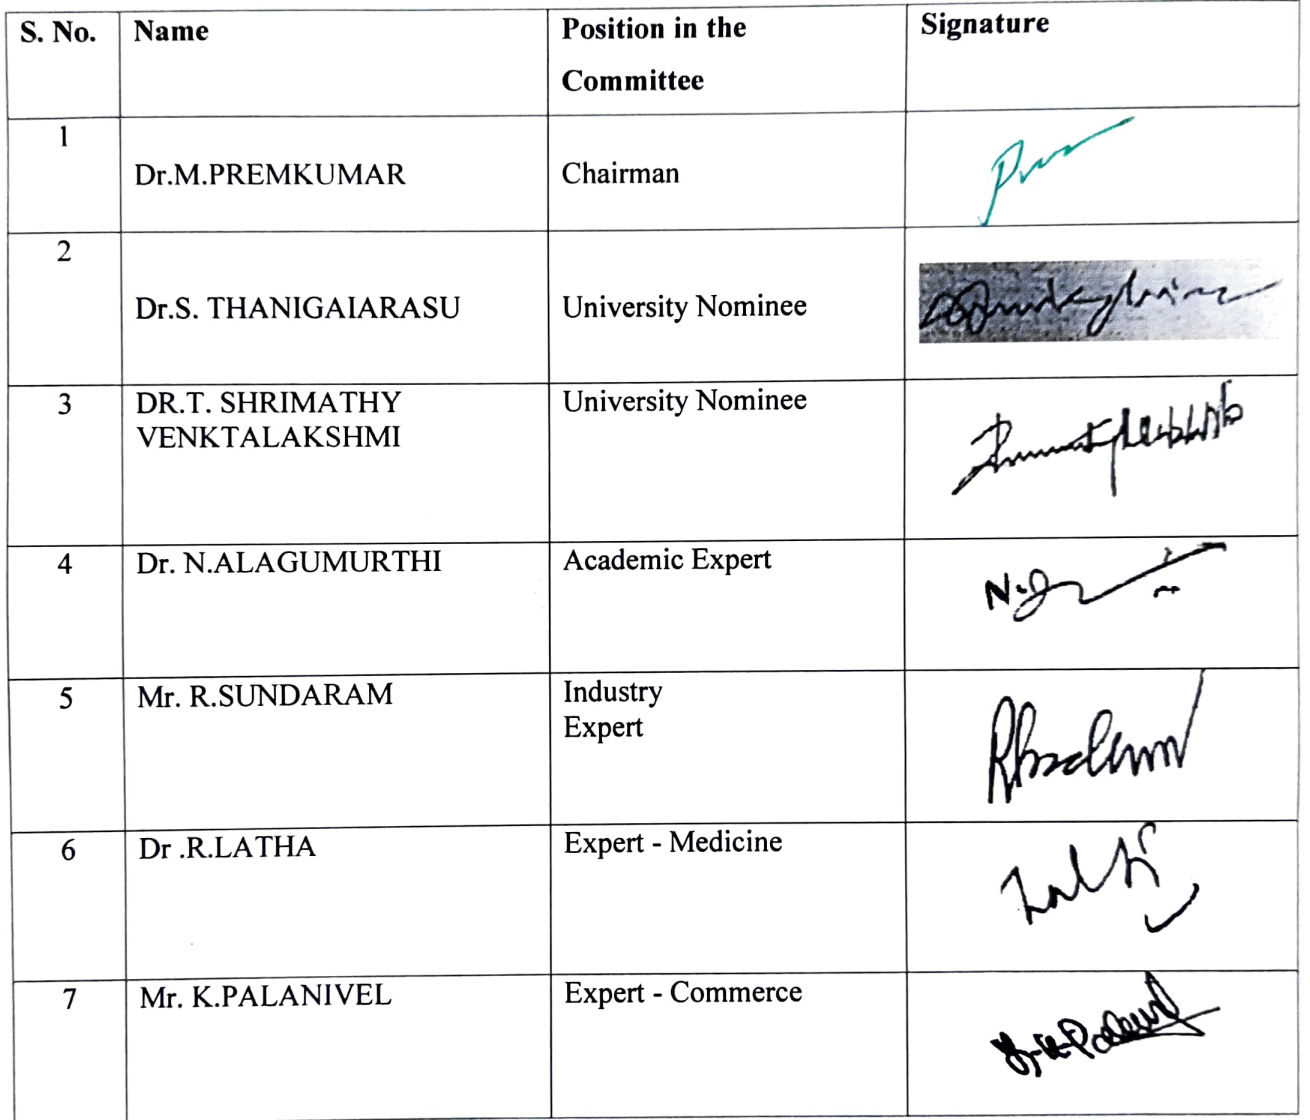 S. No. Name Position in the Committee Signature
1 Dr.M.PREMKUMAR Chairman
2 Dr.S. THANIGAIARASU University Nominee
3 DR.T. SHRIMATHY VENKTALAKSHMI University Nominee
4 Dr. N.ALAGUMURTHI Academic Expert
5 Mr. R.SUNDARAM Industry Expert
6 Dr .R.LATHA Expert - Medicine
7 Mr. K.PALANIVEL Expert - Commerce